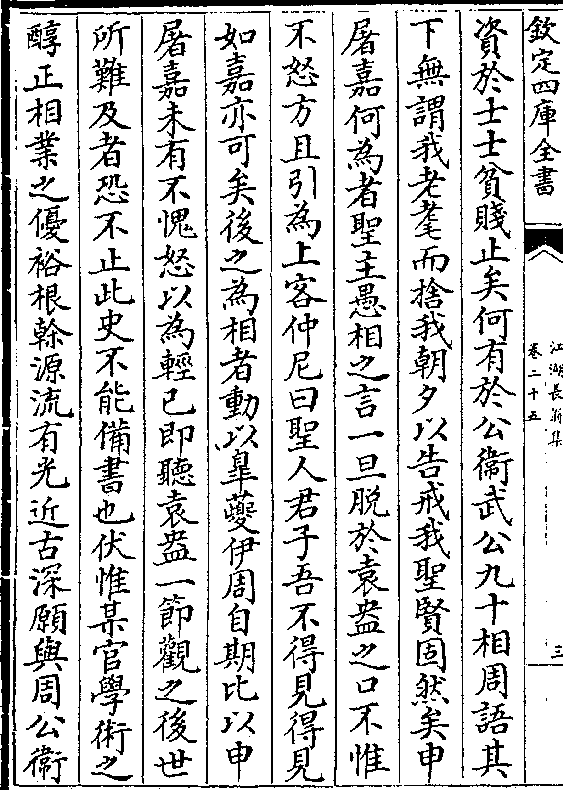 欽定四庫全書
江湖長翁集
卷二十五
三
資於士士貧賤止矣何有於公衞武公九十相周語其
下無謂我老耄而捨我朝夕以告戒我聖賢固然矣申
屠嘉何為者聖主愚相之言一旦脱於袁盎之口不惟
不怒方且引為上客仲尼曰聖人君子吾不得見得見
如嘉亦可矣後之為相者動以臯夔伊周自期比以申
屠嘉未有不愧怒以為輕已即聽袁盎一節觀之後世
所難及者恐不止此史不能備書也伏惟某官學術之
醇正相業之優裕根榦源流有光近古深願與周公衞